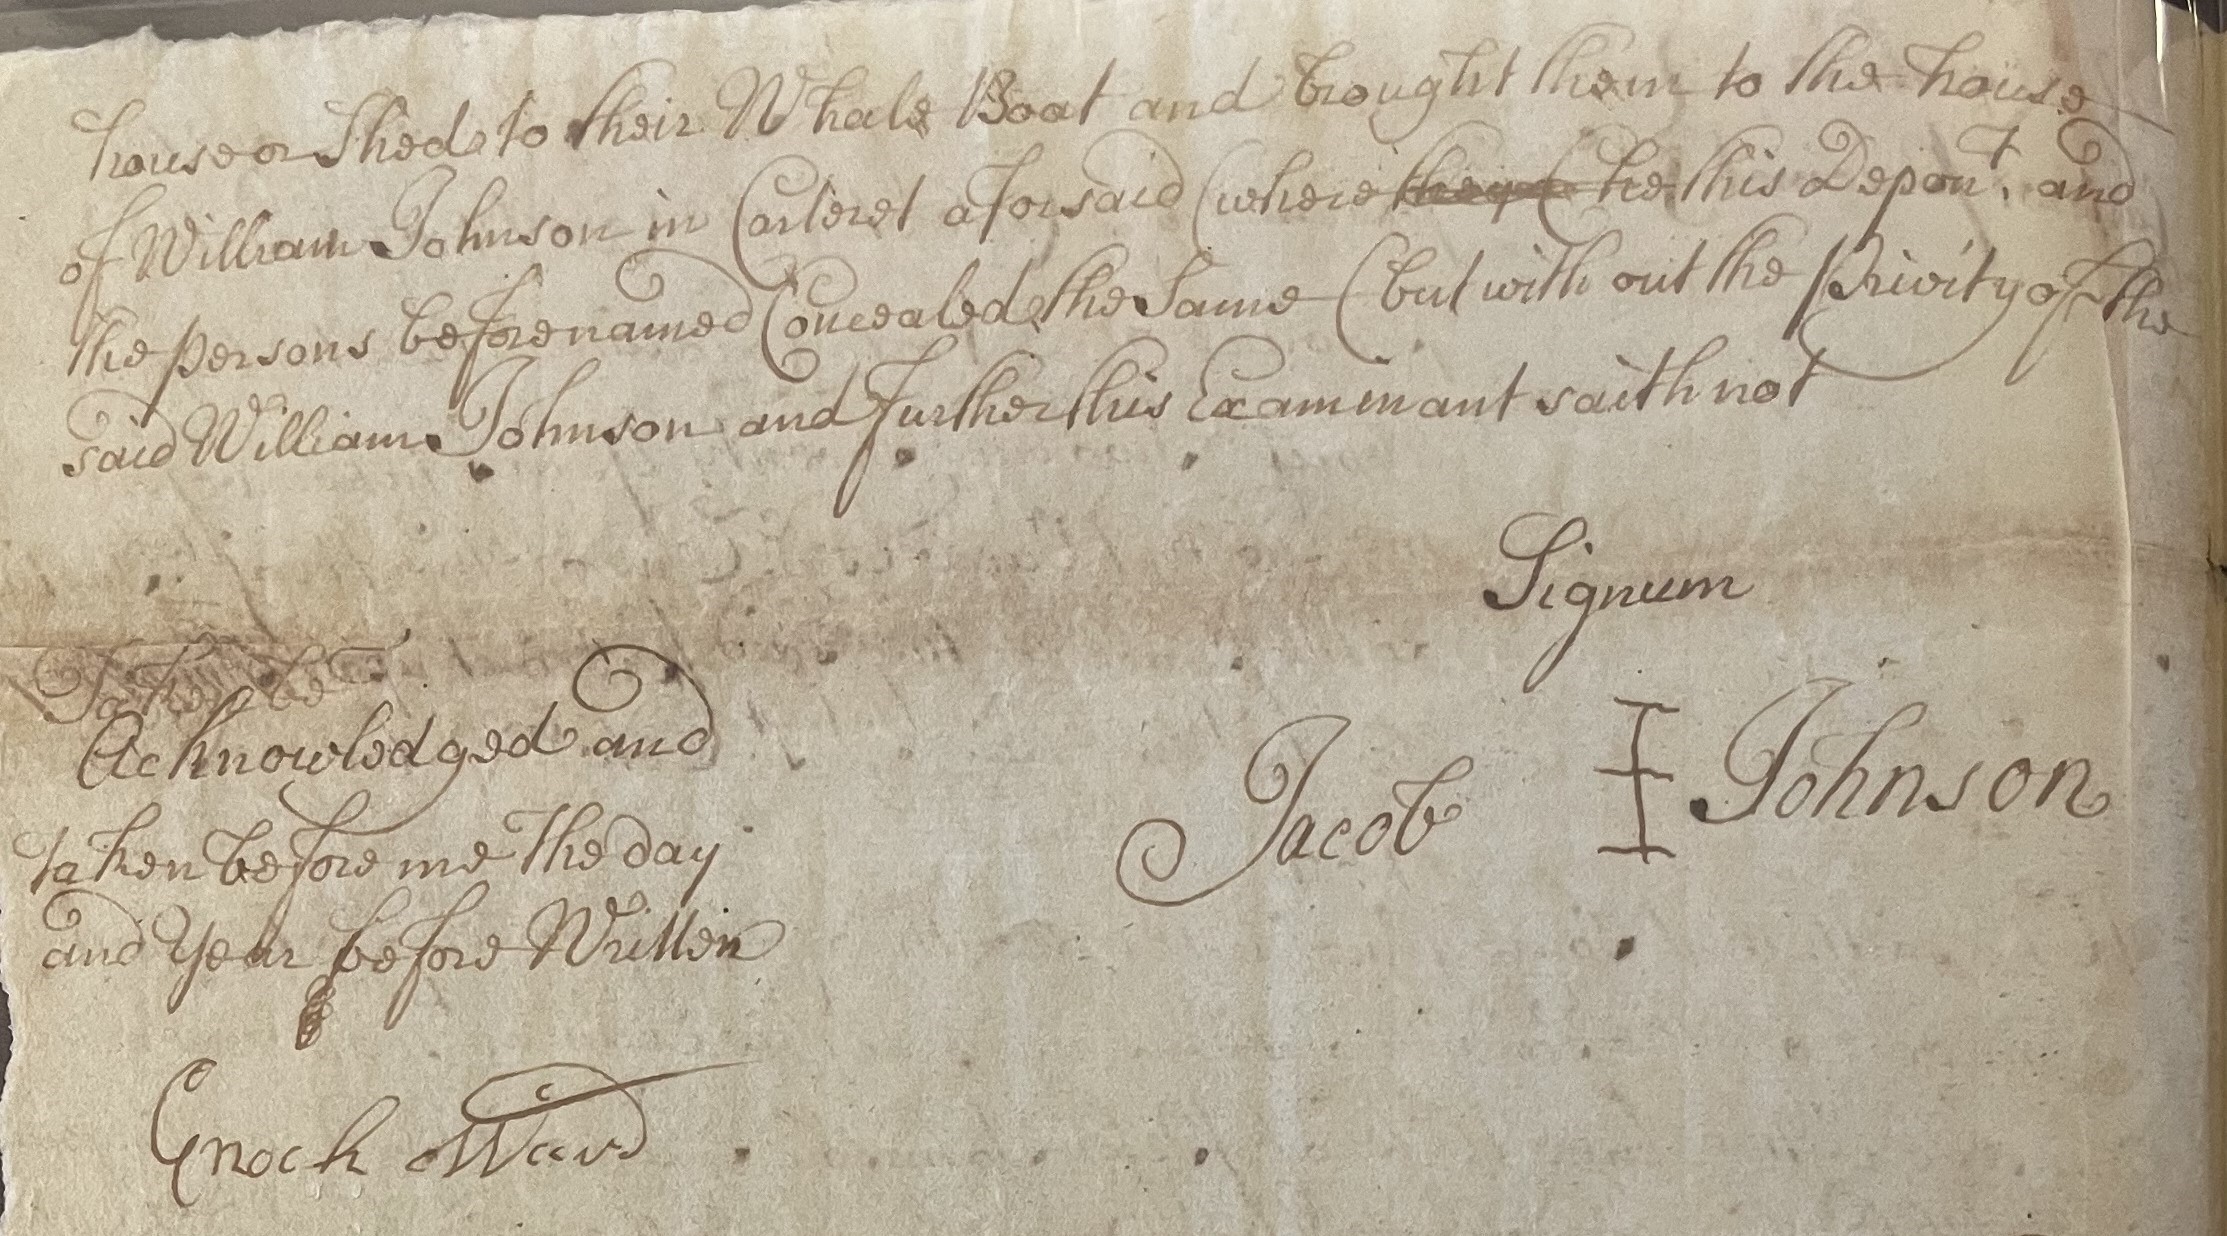 house or Shed to their Whale Boat and brought them to the house
of William Johnson in Carteret aforsaid (where they (he this Depont. and
the persons beforenamed Concealed the Same (but with out the Privity of the
said William Johnson and further this Examinant saith not
Signum
Jacob Johnson
Taken be
Acknowledged and
taken before me the day
and Year before Written
Enoch Ward